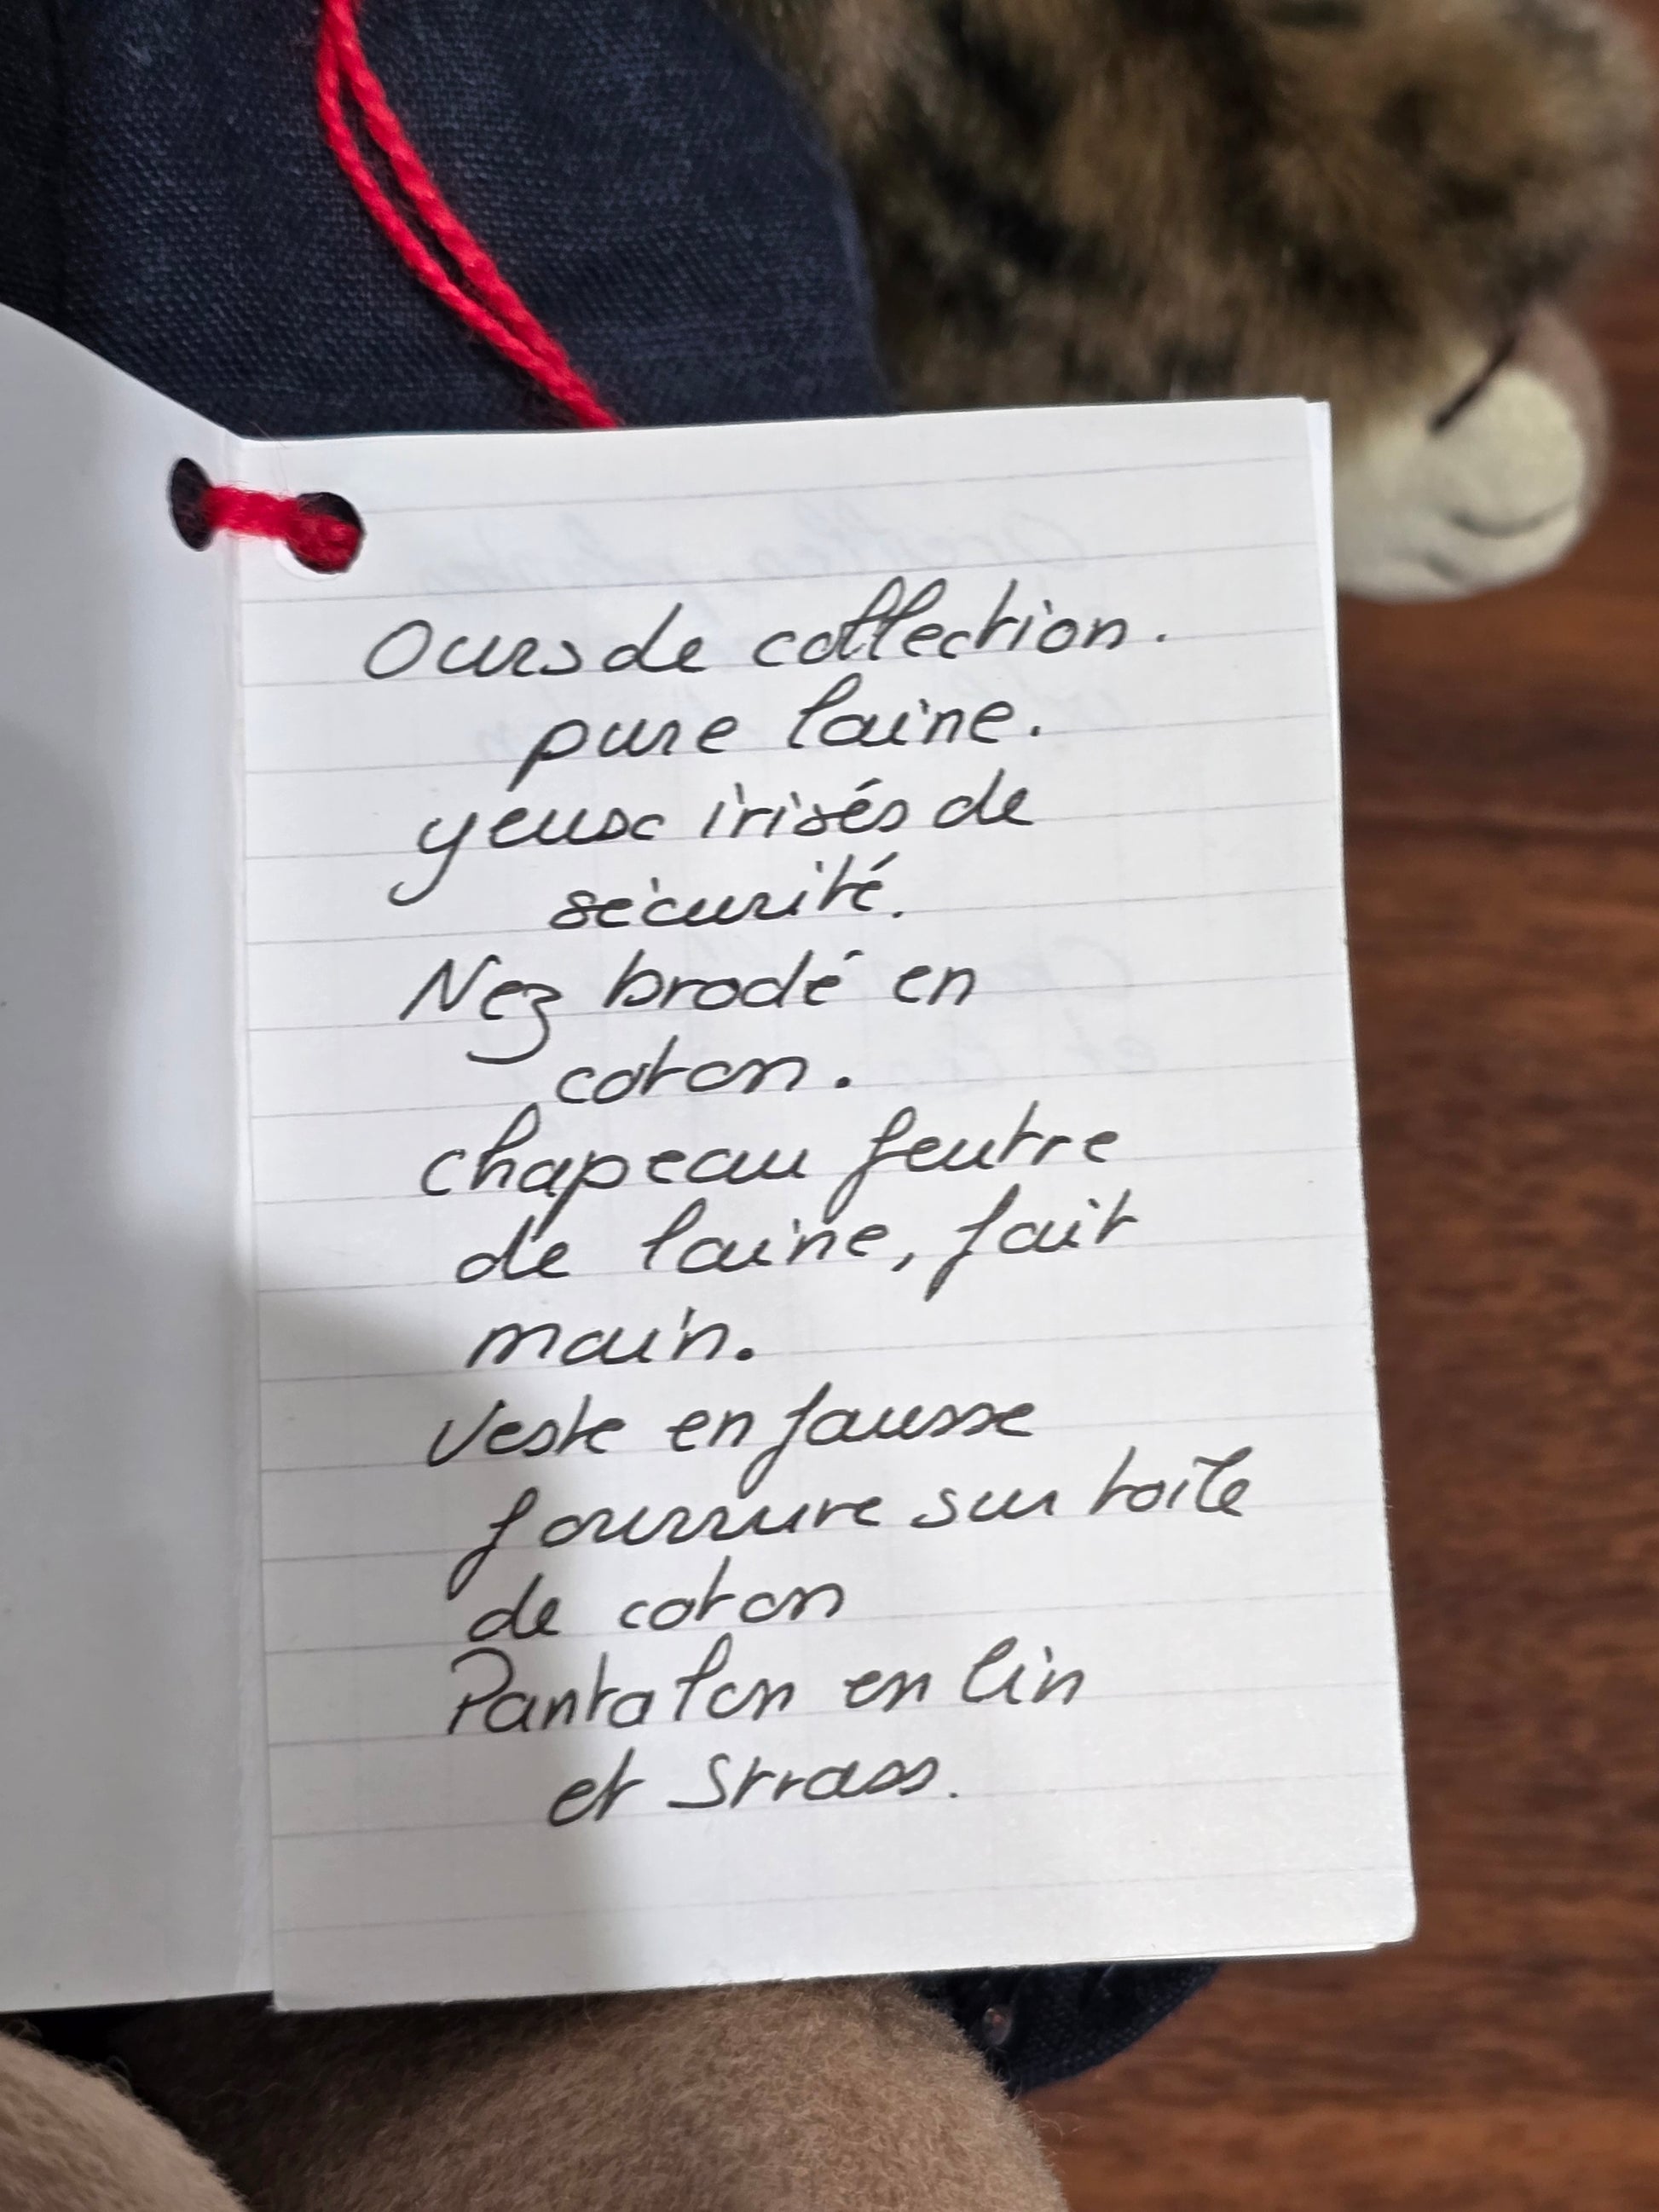 Ours de collection.
pure laine.
yeux irisés de
sécurité.
Nez brodé en
coton.
chapeau feutre
de laine, fait
main.
Veste en fausse
fourrure sur toile
de coton
Pantalon en lin
et Strass.